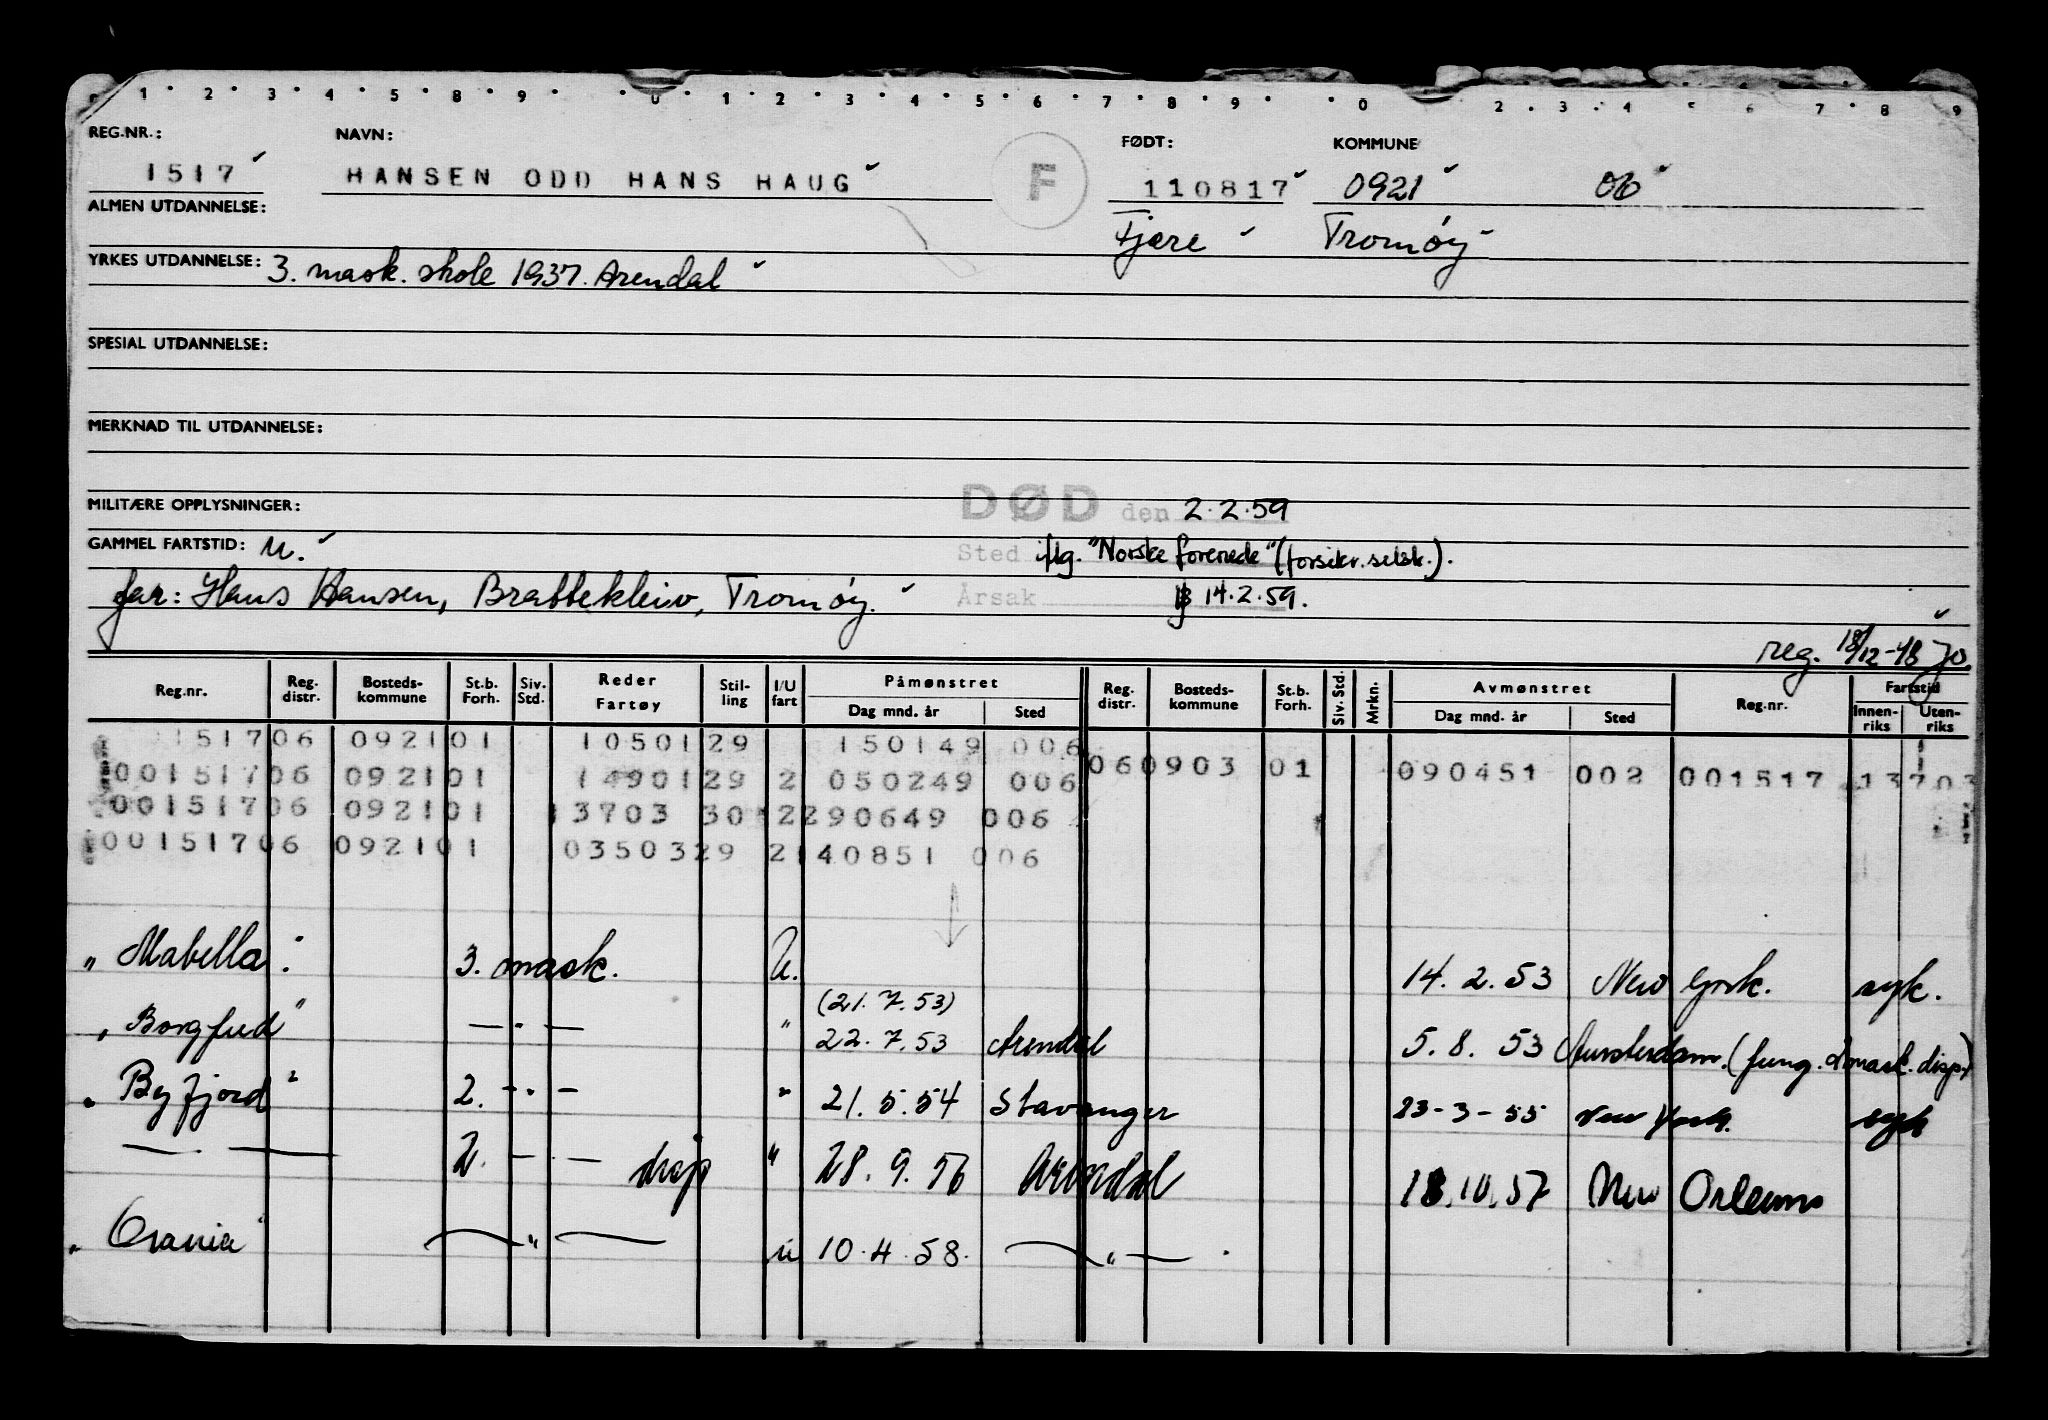 1 2 3 4 5 8 9 0 1 2 3 4 5 6 7 8 9 0 2 3 4 5 6 7 8 9
REG.NR.: NAVN: FØDT: KOMMUNE
1517 HANSEN ODD HANS HAUG F 110817 0921 06
ALMEN UTDANNELSE: Fjære Tromøy
YRKES UTDANNELSE: 3. mask. skole 1937. Arendal
SPESIAL UTDANNELSE:
MERKNAD TIL UTDANNELSE:
MILITÆRE OPPLYSNINGER: DØD den 2.2.59
GAMMEL FARTSTID: U. Sted iflg. "Norske forenede" (forsikr.selsk.).
far: Hans Hansen, Brattekleiv, Tromøy. Årsak 14.2.59.
reg. 18/12-48 Jo.
Reg.nr. Reg. distr. Bosteds-kommune St.b. Forh. Siv. Std. Reder Fartøy Stil-ling I/U fart Påmønstret Dag mnd. år Sted Reg. distr. Bosteds-kommune St.b. Forh. Siv. Std. Mrkn. Avmønstret Dag mnd. år Sted Reg.nr. Fartstid Innen-riks Uten-riks
151706 092101 1050129 150149 006
060903 01 090451 002 001517 13703
00151706 092101 1490129 2 050249 006
00151706 092101 13703 30 2290649 006
00151706 092101 0350329 2140851 006
"Mabella". 3. mask. U. 14. 2. 53 New York. syk.
(21. 7. 53)
"Borgfred" — " — " 22. 7. 53 Arendal 5. 8. 53 Amsterdam. (fung. 2 mask. disp.)
"Byfjord" 2. - " - " 21. 5. 54 Stavanger 23-3-55 New York. syk
— " — 2. — " — disp " 28. 9. 56 Arendal 18.10.57 New Orleans
"Orania" — " — u 10.4.58. — " — .